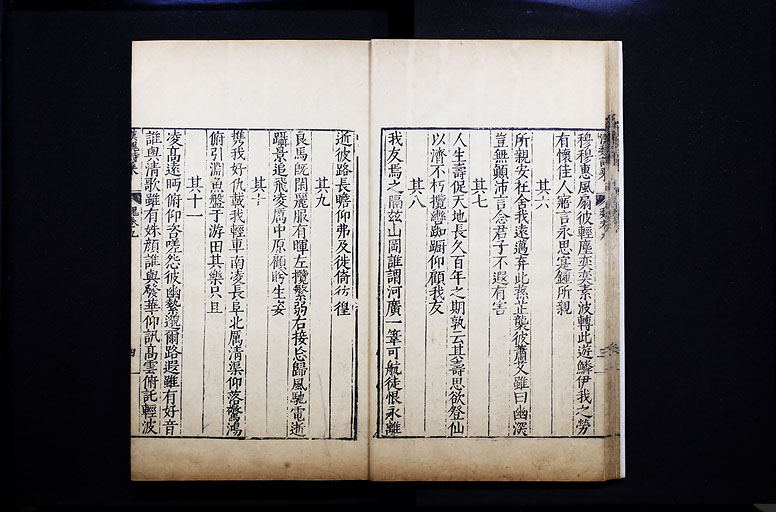 穆穆惠風扇彼輕塵奕奕素波轉此遊鱗伊我之勞
有懷佳人寤言永思寔鍾所親
其六
所親安在舍我遠邁棄此蓀芷襲彼蕭艾雖曰幽深
豈無顛沛言念君子不遐有害
其七
人生壽促天地長久百年之期孰云其壽思欲登仙
以濟不朽攬轡踟躕仰顧我友
其八
我友焉之隔茲山岡誰謂河廣一葦可航徒恨永離
逝彼路長瞻仰弗及徙倚彷徨
其九
良馬旣閑麗服有暉左攬繁弱右接忘歸風馳電逝
躡景追飛凌厲中原顧眄生姿
其十
携我好仇載我輕車南凌長阜北厲淸渠仰落驚鴻
俯引淵魚盤于游田其樂只且
其十一
凌高遠眄俯仰咨嗟怨彼幽縶邈爾路遐雖有好音
誰與淸歌雖有姝顏誰與發華仰訊高雲俯託輕波